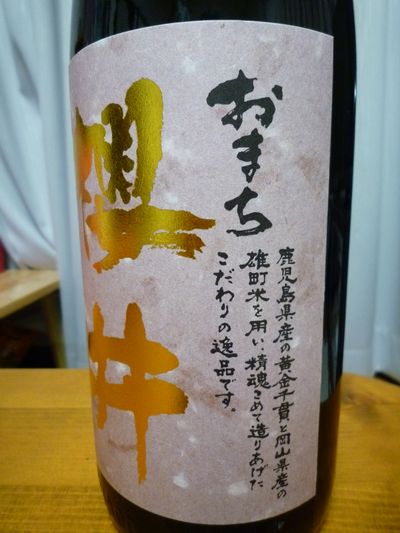 櫻井
おまち
鹿児島県産の黄金千貫と岡山県産の
雄町米を用い、精魂こめて造りあげた
こだわりの逸品です。